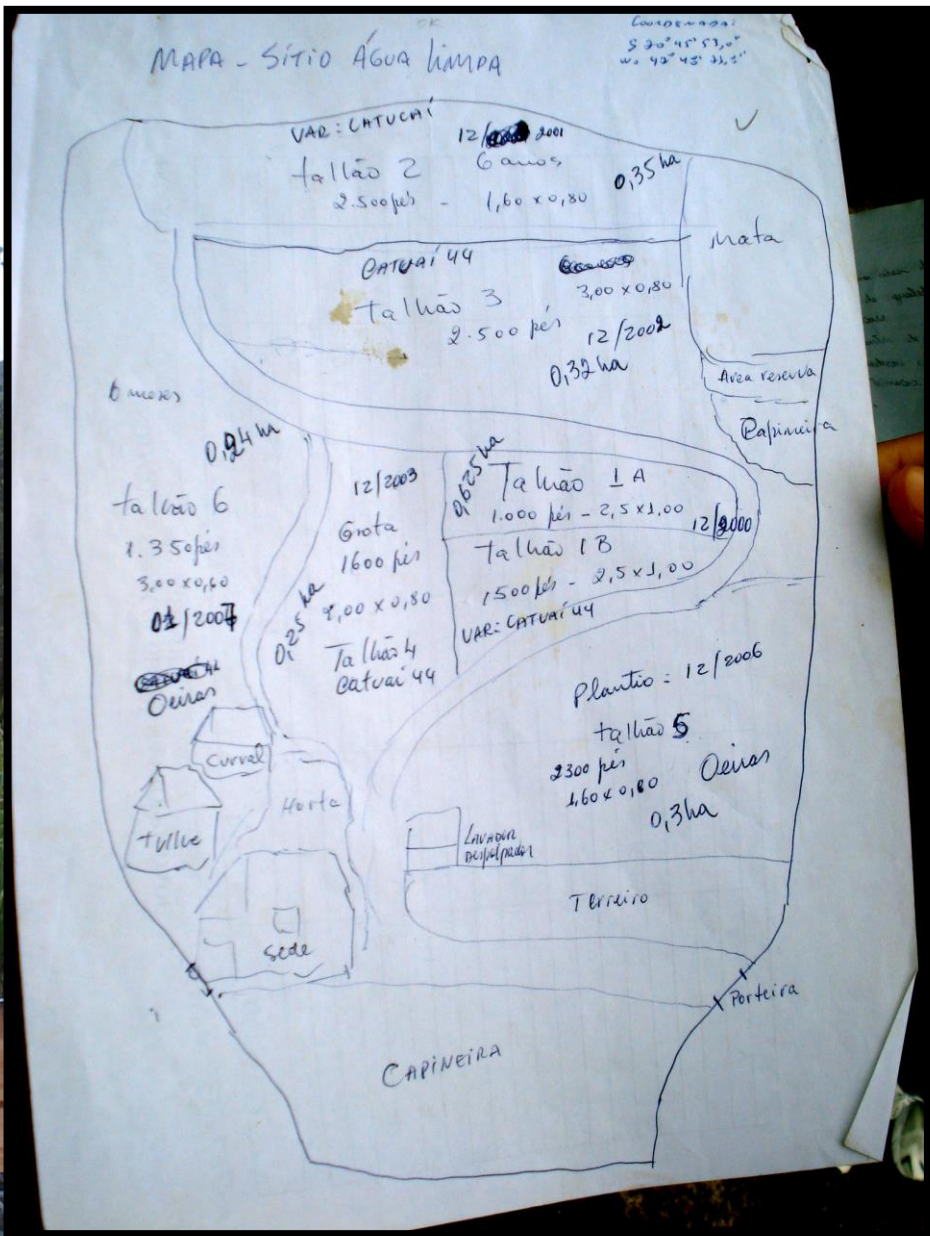 MAPA - SÍTIO ÁGUA LIMPA
COORDENADA:
S 20° 45' 53,0"
VAR: CATUCAÍ
12/ 2001
talhão 2
6 anos
0,35 ha
2.500 pés - 1,60 x 0,80
Mata
CATUAÍ 44
talhão 3
3,00 x 0,80
2.500 pés
12/2002
0,32 ha
Area reserva
Capineira
6 meses
0,24 ha
talhão 6
1.350 pés
3,00 x 0,60
01/2007
Oeiras
12/2003
Grota
1600 pés
2,00 x 0,80
0,25 ha
Talhão 4
Catuaí 44
0,625 ha
Talhão 1 A
1.000 pés - 2,5 x 1,00
12/2000
Talhão 1 B
1500 pés - 2,5 x 1,00
VAR: CATUAÍ 44
Plantio: 12/2006
talhão 5
2300 pés
Oeiras
1,60 x 0,80
0,3 ha
Curral
Horta
tulha
sede
LAVADOR
Despolpador
Terreiro
Porteira
CAPINEIRA